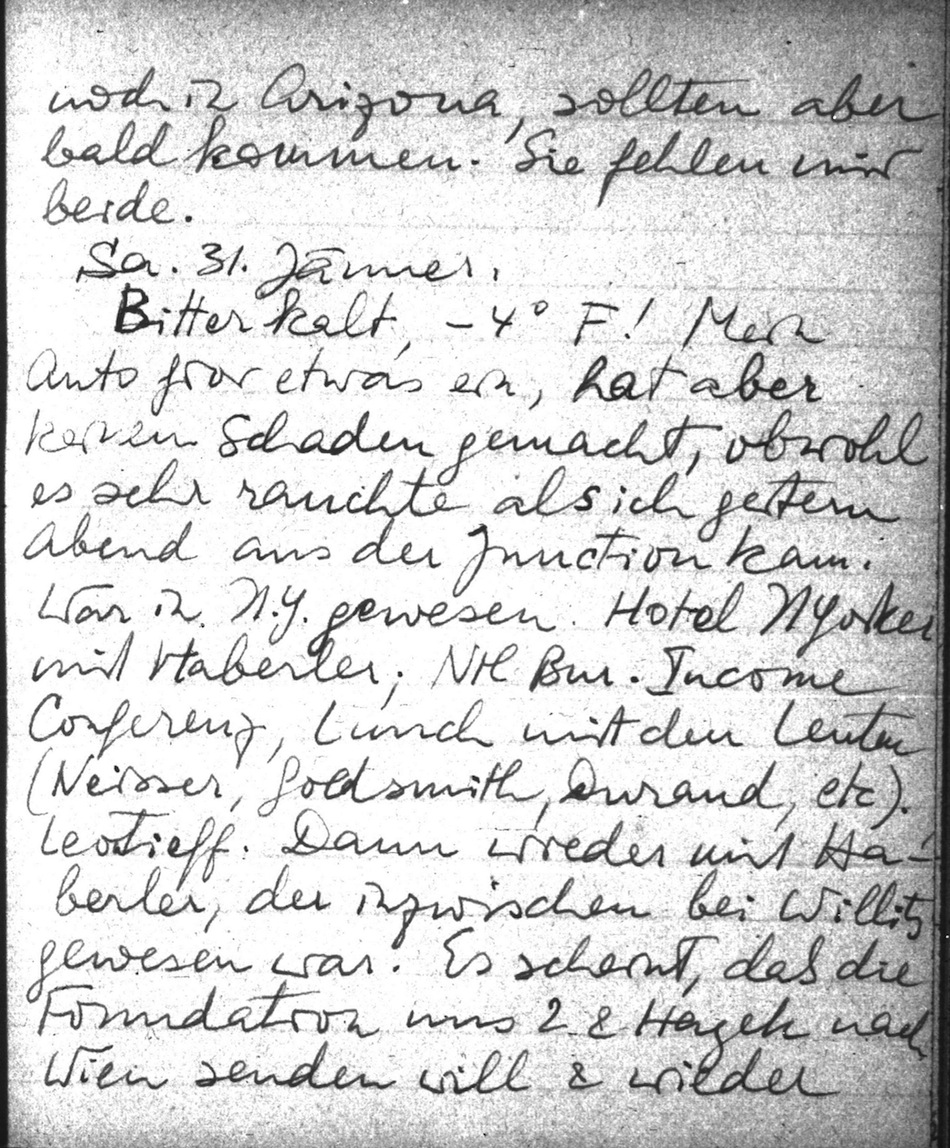 noch in Arizona, sollten aber
bald kommen. Sie fehlen mir
beide.
Sa. 31. Jänner.
Bitterkalt, -4° F! Mein
Auto fror etwas ein, hat aber
keinen Schaden gemacht, obwohl
es sehr rauchte als ich gestern
Abend aus der Junction kam.
War in N.Y. gewesen. Hotel NYorker
mit Haberler; Bur. Income
Conferenz, Lunch mit den Leuten
(Neisser, Goldsmith, Durand, etc).
Leontieff. Dann wieder mit Ha-
berler, der inzwischen bei Willits
gewesen war. Es scheint, daß die
Foundation uns 2 & Hayek nach
Wien senden will & wieder